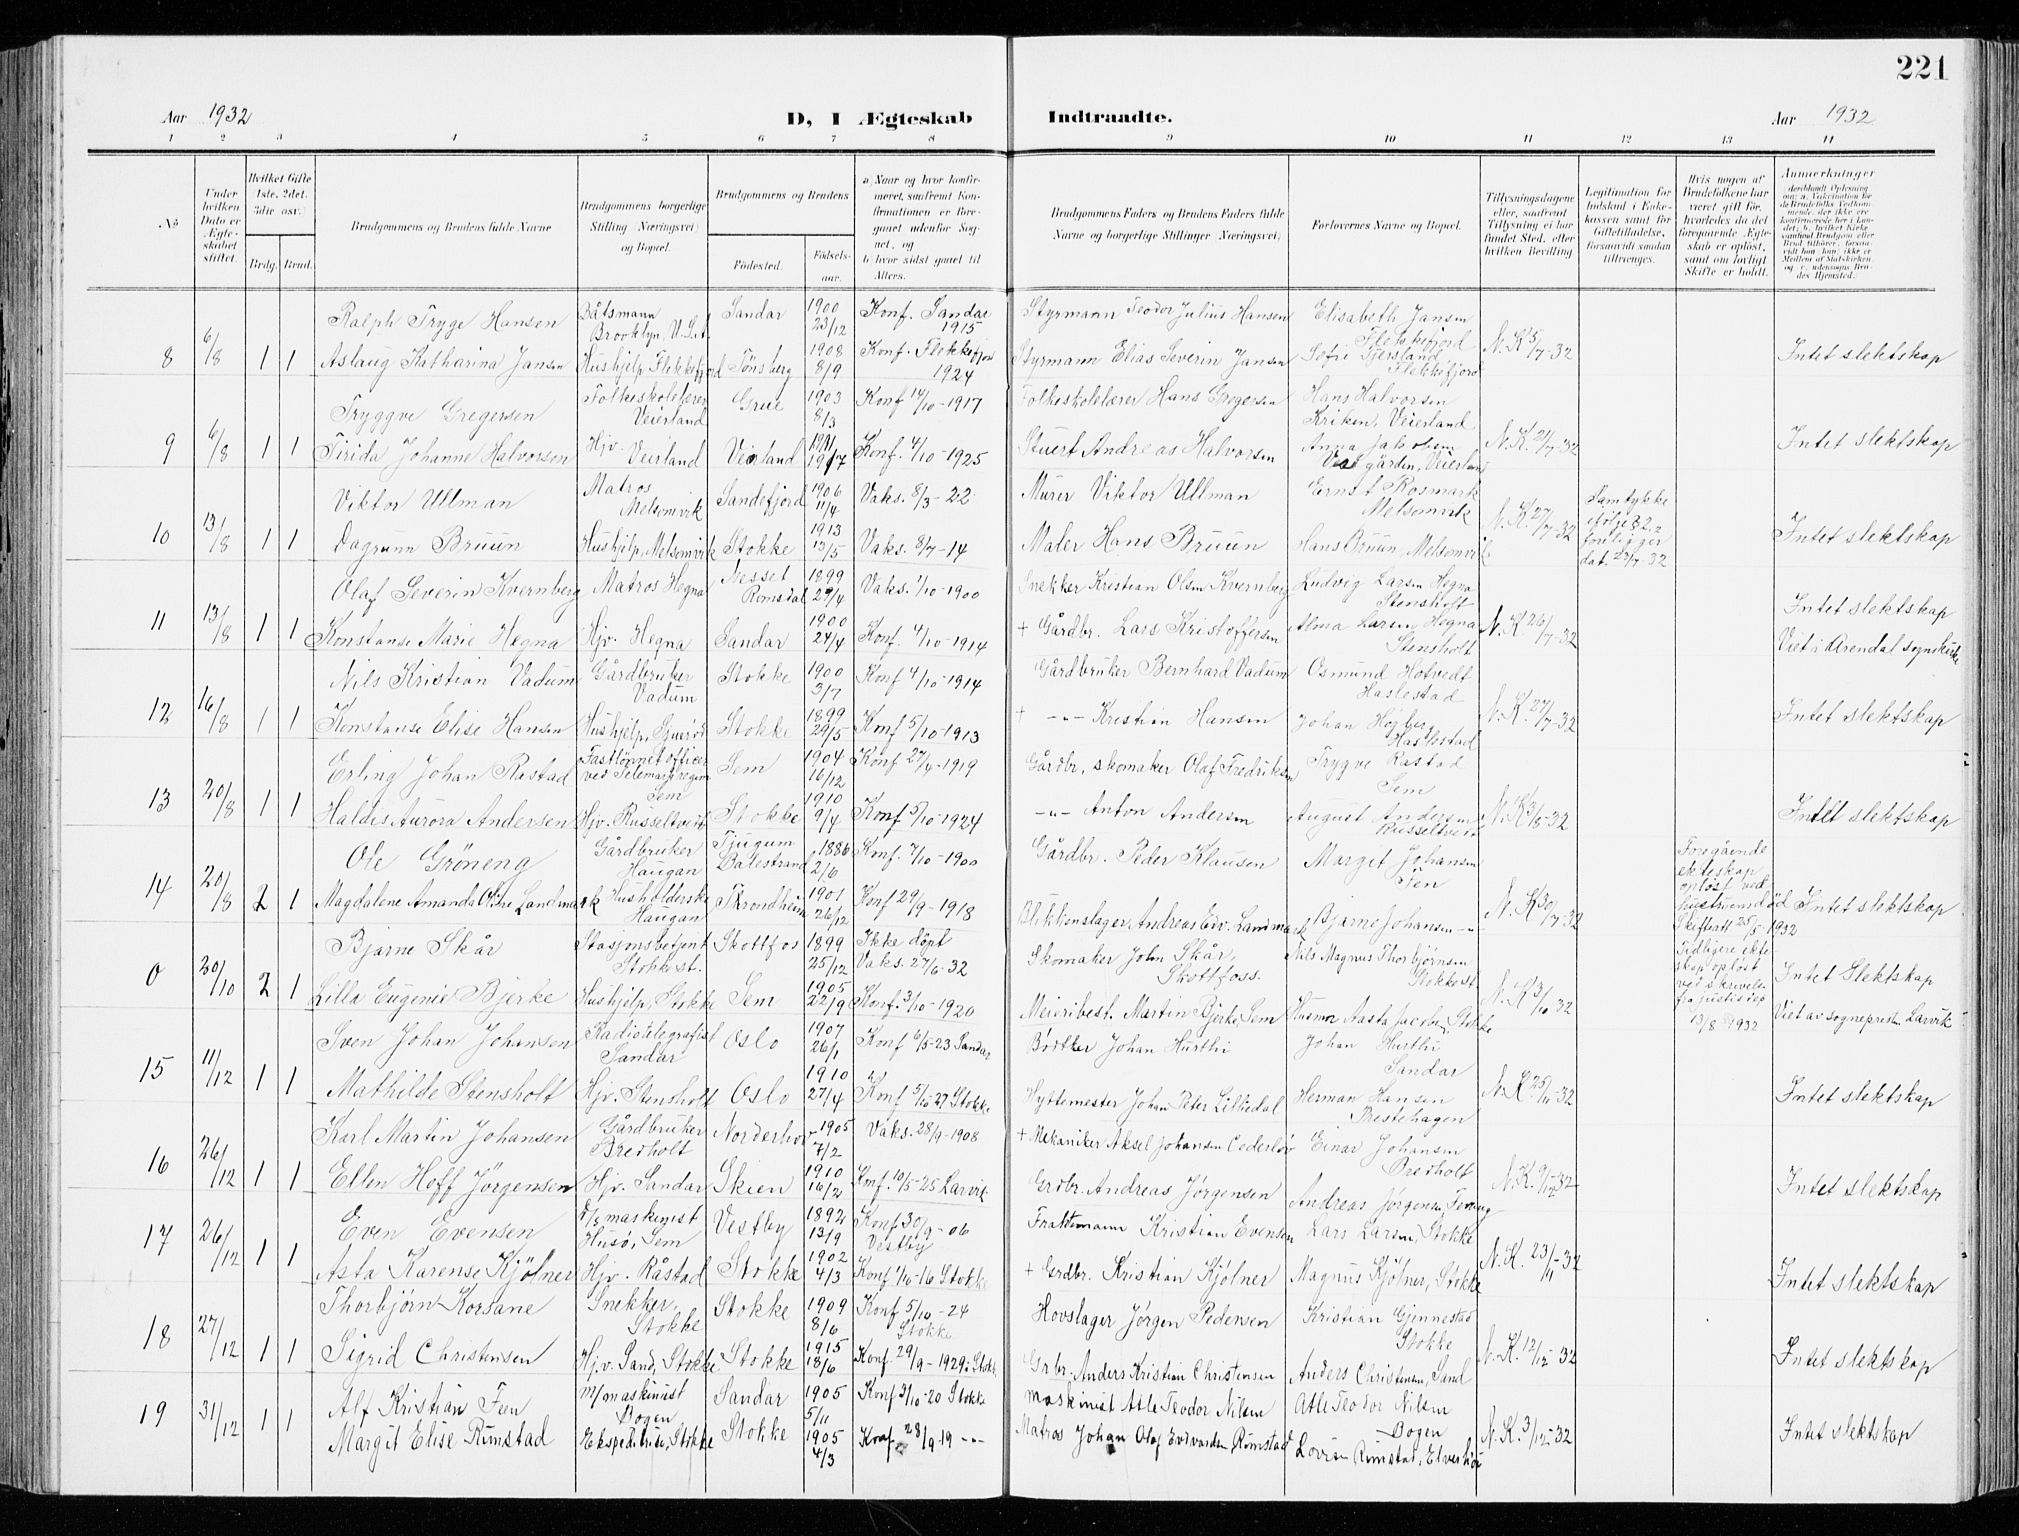 221
Aar 1932 D, I Ægteskab Indtraadte. Aar 1932
1 2 3 4 5 6 7 8 9 10 11 12 13 14
No
Under hvilken Dato er Ægteskabet stiftet.
Hvilket Gifte 1ste, 2det, 3die osv.
Brdg. Brud.
Brudgommens og Brudens fulde Navne
Brudgommens borgerlige Stilling (Næringsvei) og Bopæl.
Brudgommens og Brudens
Fødested. Fødselsaar.
a) Naar og hvor konfirmeret, saafremt Konfirmationen er foregaaet udenfor Sognet, og
b) hvor sidst gaaet til Alters.
Brudgommens Faders og Brudens Faders fulde Navne og borgerlige Stillinger (Næringsvei)
Forlovernes Navne og Bopæl.
Tillysningsdagene eller, saafremt Tillysning ei har fundet Sted, efter hvilken Bevilling
Legitimation for Indskud i Enkekassen samt for Giftetilladelse, forsaavidt saadan tiltrænges.
Hvis nogen af Brudefolkene har været gift før, hvorledes da det foregaaende Ægteskab er opløst, samt om lovligt Skifte er holdt.
Anmerkninger
8 6/8 1 1
Ralph Tryge Hansen Båtsmann Brooklyn, U.S.A. Sandar 1900 23/12 Konf. Sandar 1915 Styrmann Teodor Julius Hansen Elisabeth Jansen Flekkefjord
Aslaug Katharina Jansen Hushjelp Flekkefjord Tønsberg 1908 8/9 Konf. Flekkefjord 1924 Styrmann Elias Severin Jansen Flekkefjord N.K 5/7-32 Intet slektskap
9 6/8 1 1
Tryggve Gregersen Folkeskolelærer Veierland Grue 1903 8/3 Konf 14/10-1917 Folkeskolelærer Hans Gregersen Hans Halvorsen Kriken, Veierland
Tirida Johanne Halvorsen Hjv. Veierland Veierland Konf. 4/10-1925 Stuert Andreas Halvorsen Anna Jakobsen Veierland N.K. 21/7-32 Intet slektskap
10 13/8 1 1
Viktor Ullman Matros Melsomvik Sandefjord 1906 11/4 Vaks. 8/3-22 Murer Viktor Ullman Ernst Rosmark Melsomvik
Dagrunn Bruun Hushjelp, Melsomvik Stokke 1913 13/5 Vaks. 8/7-14 Maler Hans Bruun Hans Bruun, Melsomvik N.K. 27/7-32 Samtykke ifølge § 2,2 foreligger dat. 27/7-32 Intet slektskap
11 13/8 1 1
Olaf Severin Kvernberg Matros Hegna Nesset Romsdal 1899 27/4 Vaks. 1/10-1900 Snekker Kristian Olsen Kvernberg Ludvig Larsen Hegna Stensholt
Konstanse Marie Hegna Hjv. Hegna Sandar 1900 24/4 Konf. 4/10-1914 + Gårdbr. Lars Kristoffersen Alma Larsen, Hegna Stensholt N.K 26/7-32 Intet slektskap
Viet i Arendal sognekirke
12 16/8 1 1
Nils Kristian Vadum Gårdbruker Vadum Stokke 1900 3/7 Konf 4/10-1914 Gårdbruker Bernhard Vadum Osmund Hotvedt Haslestad
Konstanse Elise Hansen Hushjelp, Stokke 1899 29/5 Konf 5/10-1913 + -"- Kristian Hansen Johan Høiberg Haslestad N.K. 27/7-32 Intet slektskap
13 20/8 1 1
Erling Johan Rastad Fastlønnet officer ved Telemark regim Sem Sem 1904 16/12 Konf 27/4-1919 Gårdbr, skomaker Olaf Fredriksen Trygve Rastad Sem
Haldis Aurora Andersen Hjv. Russeltvedt Stokke 1910 9/4 Konf 5/10-1924 -"- Anton Andersen August Andersen Russeltvedt N.K 3/8-32 Intet slektskap
14 20/8 2 1
Ole Grøneng Gårdbruker Haugan Tjugum Balestrand 1886 2/6 Konf. 7/10-1900 Gårdbr. Peder Klausen Marget Johansen Fen
Magdalene Amanda Oline Landmark Husholderske Haugan Trondheim 1901 26/12 Konf 29/9-1918 Blikkenslager Andreas Edv. Landmark Bjarne Johansen -"- N.K 30/7-32 Foregående ekteskap opløst ved hustruens død Skifteatt 25/5-1932 Intet slektskap
0 20/10 2 1
Bjarne Skår Stasjonsbetjent Stokke st. Skotfos 1899 25/12 Ikke døpt Vaks. 27/6-32 Skomaker John Skår, Skotfoss. Nils Magnus Thorbjørnsen Stokke st
Lilla Eugenie Bjerke Hushjelp, Stokke Sem 1905 22/9 Konf. 3/10-1920 Meieribest. Martin Bjerke, Sem Husmor Aasta Jacobsen, Stokke N.K 3/10-32 Tidligere ekteskap opløst ved skrivelse fra justisdep 13/8 1932 Intet Slektskap
Viet av sogneprest Larvik
15 11/12 1 1
Sven Johan Johansen Radiotelegrafist Sandar Oslo 1907 26/1 Konf 6/5-23 Sandar Bødker Johan Hurthi Johan Hurthi Sandar
Mathilde Stensholt Hjv. Stensholt Oslo 1910 27/4 Konf 5/10-27 Stokke Hyttemester Johan Peter Liltedal Herman Hansen Prestehagen N.K. 25/11-32 Intet slektskap
16 26/12 1 1
Karl Martin Johansen Gårdbruker Bredholt Norderhov 1905 7/2 Vaks. 28/9-1908 + Mekaniker Aksel Johansen Cederløv Einar Johansen Bredholt
Ellen Hoff Jørgensen Hjv. Sandar Skien 1910 16/2 Konf. 10/5-25 Larvik Grdbr. Andreas Jørgensen Andreas Jørgensen, N.K. 9/12-32 Intet slektskap
17 26/12 1 1
Even Evensen D/s maskinist Husø, Sem Vestby 1892 13/9 Konf 30/9-06 Vestby Fraktemann Kristian Evensen Lars Larsen, Stokke
Asta Karense Kjølner Hjv. Råstad Stokke 1902 4/3 Konf 1/10-16 Stokke + Grdbr. Kristian Kjølner Magnus Kjølner, Stokke N.K. 23/11-32 Intet slektskap
18 27/12 1 1
Thorbjørn Korsane Snekker, Stokke Stokke 1909 8/6 Konf 5/10-24 Stokke Hovslager Jørgen Pedersen Kristian Gjennestad Stokke
Sigrid Christensen Hjv. Sand, Stokke Stokke 1915 18/6 Konf. 29/9-1929 i Stokke Grbr. Anders Kristian Christensen Anders Christensen, Sand N.K. 12/12-32 Intet slektskap
19 31/12 1 1
Alf Kristian Fen M/maskinist Bogen Sandar 1905 5/11 Konf 3/10-20 Stokke maskinist Atle Teodor Nilsen Atle Teodor Nilsen Bogen
Margit Elise Rimstad Ekspeditrise, Stokke Stokke 1905 4/3 Konf 28/9-19 -"- Matros Johan Olaf Edvardsen Rimstad Lovise Rimstad, Elverhøi N.K. 3/12-32 Intet slektskap